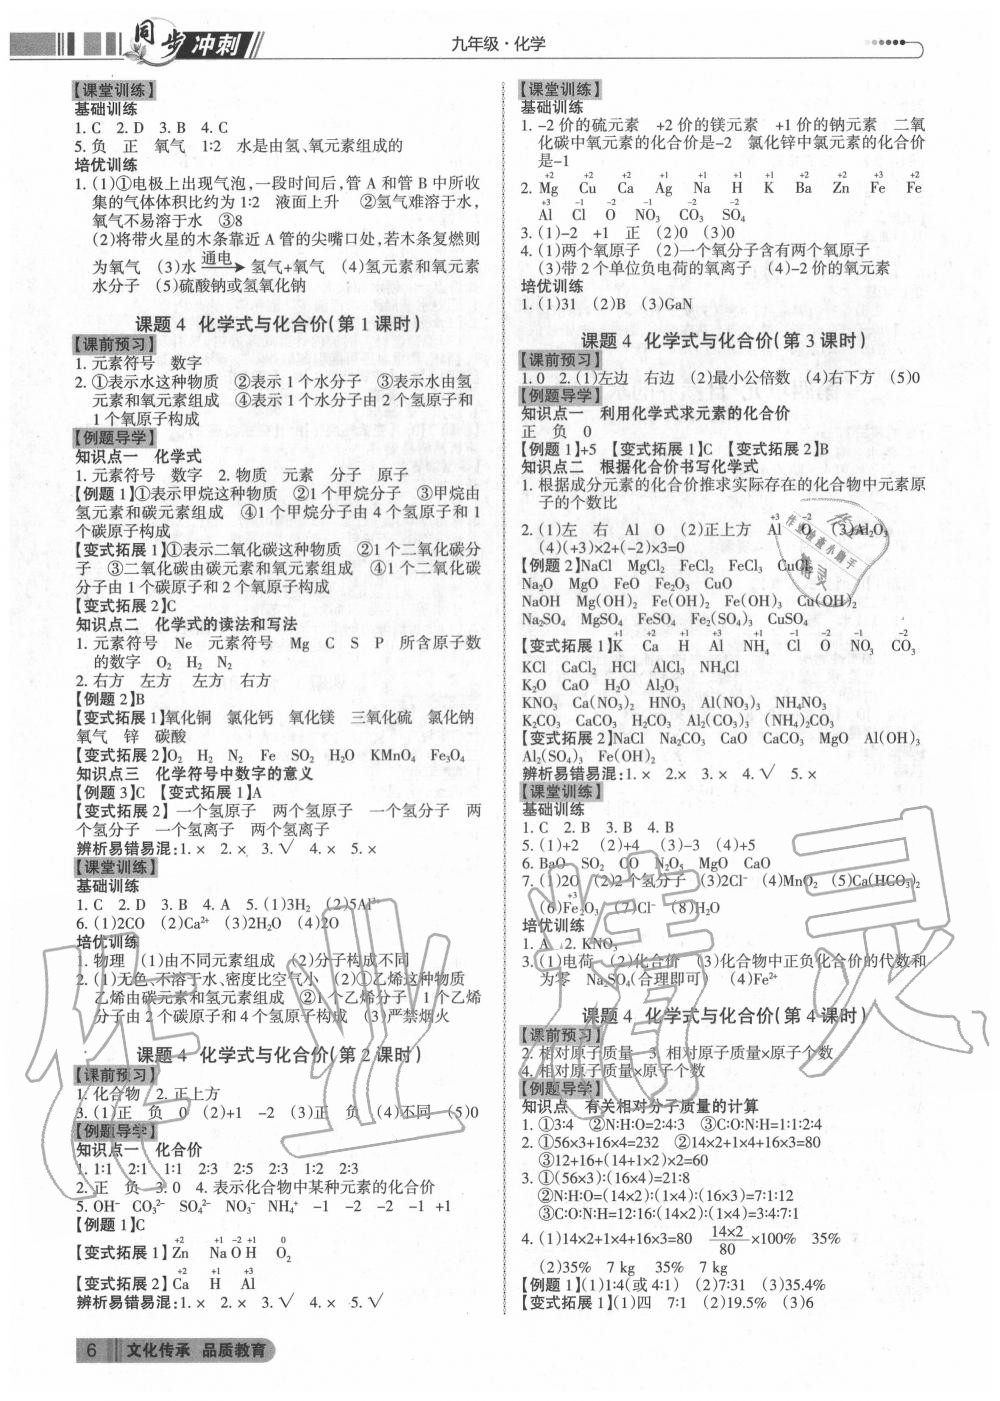 同步冲刺
九年级·化学
【课堂训练】
基础训练
1. C 2. D 3. B 4. C
5. 负 正 氧气 1∶2 水是由氢、氧元素组成的
培优训练
1. (1)①电极上出现气泡,一段时间后,管 A 和管 B 中所收
集的气体体积比约为 1∶2 液面上升 ②氢气难溶于水,
氧气不易溶于水 ③8
(2)将带火星的木条靠近 A 管的尖嘴口处,若木条复燃则
为氧气 (3)水 通电→ 氢气+氧气 (4)氢元素和氧元素
水分子 (5)硫酸钠或氢氧化钠
课题 4 化学式与化合价(第 1 课时)
【课前预习】
1. 元素符号 数字
2. ①表示水这种物质 ②表示 1 个水分子 ③表示水由氢
元素和氧元素组成 ④表示 1 个水分子由 2 个氢原子和
1 个氧原子构成
【例题导学】
知识点一 化学式
1. 元素符号 数字 2. 物质 元素 分子 原子
【例题 1】①表示甲烷这种物质 ②1 个甲烷分子 ③甲烷由
氢元素和碳元素组成 ④1 个甲烷分子由 4 个氢原子和 1
个碳原子构成
【变式拓展 1】①表示二氧化碳这种物质 ②1 个二氧化碳分
子 ③二氧化碳由碳元素和氧元素组成 ④1 个二氧化碳
分子由 1 个碳原子和 2 个氧原子构成
【变式拓展 2】C
知识点二 化学式的读法和写法
1. 元素符号 Ne 元素符号 Mg C S P 所含原子数
的数字 O₂ H₂ N₂
2. 右方 左方 左方 右方
【例题 2】B
【变式拓展 1】氧化铜 氯化钙 氧化镁 三氧化硫 氯化钠
氧气 锌 碳酸
【变式拓展 2】O₂ H₂ N₂ Fe SO₂ H₂O KMnO₄ Fe₃O₄
知识点三 化学符号中数字的意义
【例题 3】C 【变式拓展 1】A
【变式拓展 2】 一个氢原子 两个氢原子 一个氢分子 两
个氢分子 一个氢离子 两个氢离子
辨析易错易混:1. × 2. × 3. √ 4. × 5. ×
【课堂训练】
基础训练
1. C 2. D 3. B 4. A 5. (1)3H₂ (2)5Al³⁺
6. (1)2CO (2)Ca²⁺ (3)2H₂O (4)2O
培优训练
1. 物理 (1)由不同元素组成 (2)分子构成不同
2. (1)无色、不溶于水、密度比空气小 (2)①乙烯这种物质
乙烯由碳元素和氢元素组成 ②1 个乙烯分子 1 个乙烯
分子由 2 个碳原子和 4 个氢原子构成 (3)严禁烟火
课题 4 化学式与化合价(第 2 课时)
【课前预习】
1. 化合物 2. 正上方
3. (1)正 负 0 (2)+1 -2 (3)正 负 (4)不同 (5)0
【例题导学】
知识点一 化合价
1. 1∶1 2∶1 1∶1 2∶3 2∶5 2∶3 1∶2 2∶3
2. 正 负 3. 0 4. 表示化合物中某种元素的化合价
5. OH⁻ CO₃²⁻ SO₄²⁻ NO₃⁻ NH₄⁺ -1 -2 -2 -1 +1
【例题 1】C
+2 +1 -2 +1 0
【变式拓展 1】Zn Na O H O₂
+2 +1 +3
【变式拓展 2】Ca H Al
辨析易错易混:1. × 2. × 3. √ 4. × 5. √
【课堂训练】
基础训练
1. -2 价的硫元素 +2 价的镁元素 +1 价的钠元素 二氧
化碳中氧元素的化合价是-2 氯化锌中氯元素的化合价
是-1
+2 +2 +2 +1 +1 +1 +1 +2 +2 +3 +2
2. Mg Cu Ca Ag Na H K Ba Zn Fe Fe
+3 -1 -2 -1 -2 -2
Al Cl O NO₃ CO₃ SO₄
3. (1)-2 +1 正 (2)0 (3)0
4. (1)两个氧原子 (2)一个氧分子含有两个氧原子
(3)带 2 个单位负电荷的氧离子 (4)-2 价的氧元素
培优训练
1. (1)31 (2)B (3)GaN
课题 4 化学式与化合价(第 3 课时)
【课前预习】
1. 0 2. (1)左边 右边 (2)最小公倍数 (4)右下方 (5)0
【例题导学】
知识点一 利用化学式求元素的化合价
正 负 0
【例题 1】+5 【变式拓展 1】C 【变式拓展 2】B
知识点二 根据化合价书写化学式
1. 根据成分元素的化合价推求实际存在的化合物中元素原
子的个数比
+3 -2
2. (1)左 右 Al O (2)正上方 Al O (3)Al₂O₃
(4)(+3)×2+(-2)×3=0
【例题 2】NaCl MgCl₂ FeCl₂ FeCl₃ CuCl₂
Na₂O MgO FeO Fe₂O₃ CuO
NaOH Mg(OH)₂ Fe(OH)₂ Fe(OH)₃ Cu(OH)₂
Na₂SO₄ MgSO₄ FeSO₄ Fe₂(SO₄)₃ CuSO₄
+1 +2 +1 +3 +1 -1 -2 -1 -2
【变式拓展 1】K Ca H Al NH₄ Cl O NO₃ CO₃
KCl CaCl₂ HCl AlCl₃ NH₄Cl
K₂O CaO H₂O Al₂O₃
KNO₃ Ca(NO₃)₂ HNO₃ Al(NO₃)₃ NH₄NO₃
K₂CO₃ CaCO₃ H₂CO₃ Al₂(CO₃)₃ (NH₄)₂CO₃
【变式拓展 2】NaCl Na₂CO₃ CaO CaCO₃ MgO Al(OH)₃
Al₂(SO₄)₃ Fe(OH)₂
辨析易错易混:1. × 2. × 3. × 4. √ 5. ×
【课堂训练】
基础训练
1. C 2. B 3. B 4. B
5. (1)+2 (2)+4 (3)-3 (4)+5
6. BaO SO₂ CO N₂O₅ MgO CaO
7. (1)2O (2)2 个氢分子 (3)2Cl⁻ (4)MnO₂ (5)Ca(HCO₃)₂
+3
(6)Fe₂O₃ (7)Cl⁻ (8)H₂O
培优训练
1. A 2. KNO₃
3. (1)电荷 (2)化合价 (3)化合物中正负化合价的代数和
为零 Na₂SO₄(合理即可) (4)Fe²⁺
课题 4 化学式与化合价(第 4 课时)
【课前预习】
2. 相对原子质量 3. 相对原子质量×原子个数
4. 相对原子质量×原子个数
【例题导学】
知识点 有关相对分子质量的计算
1. ①3∶4 ②N∶H∶O=2∶4∶3 ③C∶O∶N∶H=1∶1∶2∶4
2. ①56×3+16×4=232 ②14×2+1×4+16×3=80
③12+16+(14+1×2)×2=60
3. ①(56×3)∶(16×4)=21∶8
②N∶H∶O=(14×2)∶(1×4)∶(16×3)=7∶1∶12
③C∶O∶N∶H=12∶16∶(14×2)∶(1×4)=3∶4∶7∶1
4. (1)14×2+1×4+16×3=80 14×2/80 ×100% 35%
(2)35% 7 kg 35% 7 kg
【例题 1】(1)1∶4(或 4∶1) (2)7∶31 (3)35.4%
【变式拓展 1】(1)四 7∶1 (2)19.5% (3)6
6 文化传承 品质教育
作业精灵